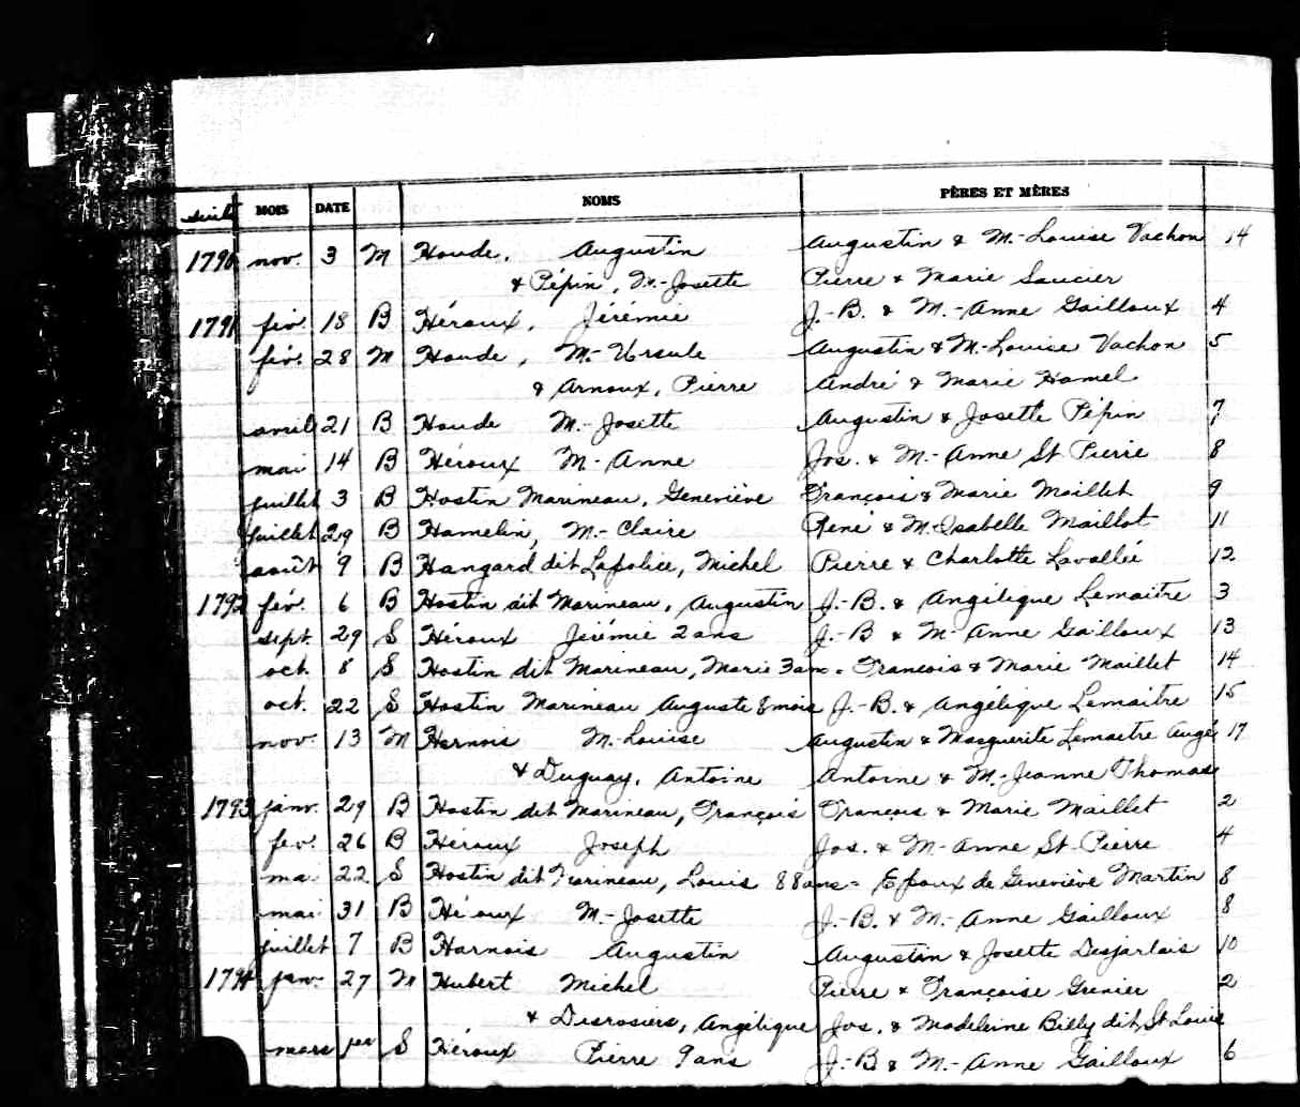 suite MOIS DATE NOMS PÈRES ET MÈRES
1790 nov. 3 M Houde, Augustin Augustin & M.-Louise Vachon 14
& Pépin, M.-Josette Pierre & Marie Saucier
1791 fév. 18 B Héroux, Jérémie J.-B. & M.-Anne Gailloux 4
fév. 28 M Houde, M.-Ursule Augustin & M.-Louise Vachon 5
& Arnoux, Pierre André & Marie Hamel
avril 21 B Houde M.-Josette Augustin & Josette Pépin 7
mai 14 B Héroux M-Anne Jos. & M.-Anne St Pierre 8
juillet 3 B Hostin Marineau, Geneviève François & Marie Maillet 9
juillet 29 B Hamelin, M.-Claire René & M.-Isabelle Maillot 11
août 9 B Hangard dit Lapolice, Michel Pierre & Charlotte Lavallée 12
1792 fév. 6 B Hostin dit Marineau, Augustin J.-B. & Angélique Lemaitre 3
sept. 29 S Héroux Jérémie 2 ans J.-B & M-Anne Gailloux 13
oct. 8 S Hostin dit Marineau, Marie 3 ans. François & Marie Maillet 14
oct. 22 S Hostin Marineau Auguste 8 mois J.-B. & Angélique Lemaitre 15
nov. 13 M Harnois M.-Louise Augustin & Marguerite Lemaitre Augé 17
& Duguay, Antoine Antoine & M.-Jeanne Thomas
1793 janv. 29 B Hostin dit Marineau, François François & Marie Maillet 2
fev. 26 B Héroux Joseph Jos. & M-Anne St-Pierre 4
mai 22 S Hostin dit Marineau, Louis 88 ans - Epoux de Geneviève Martin 8
mai 31 B Héroux M.-Josette J.-B. & M.-Anne Gailloux 8
juillet 7 B Harnois Augustin Augustin & Josette Desjarlais 10
1794 janv. 27 M Hubert Michel Pierre & Françoise Grenier 2
& Desrosiers, Angélique Jos. & Madeleine Billy dit St Louis
mars 1er S Héroux Pierre 9 ans J.-B & M.-Anne Gailloux 6